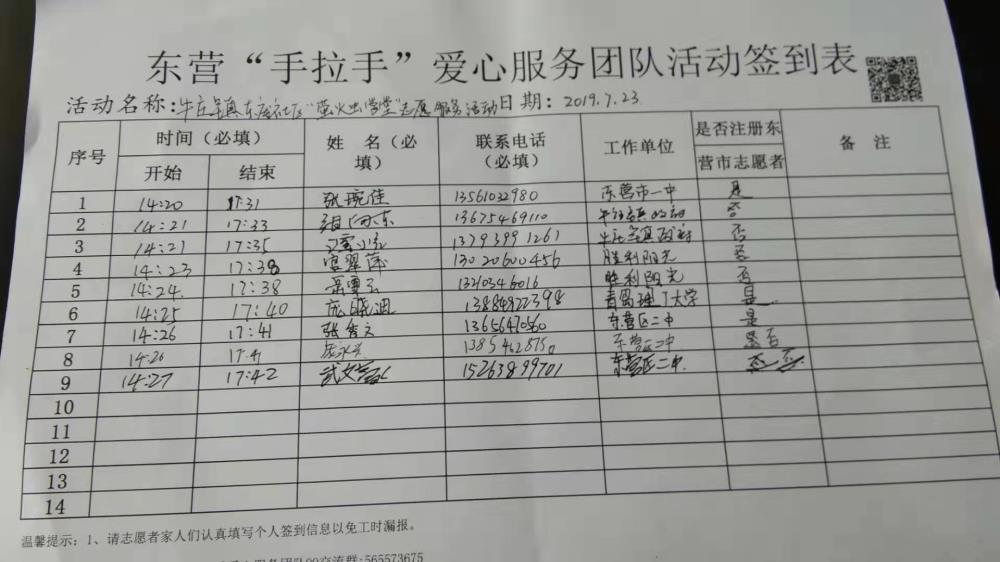 东营“手拉手”爱心服务团队活动签到表
活动名称:牛庄镇 社区"萤火虫学堂"志愿服务活动日期:2019.7.23
序号 时间（必填） 姓 名（必填） 联系电话（必填） 工作单位 是否注册东营市志愿者 备 注
开始 结束
1 14:20 17:31 张琬佳 13561032980 东营市一中 是
2 14:21 17:33 13675469110 牛庄镇政府 否
3 14:21 17:35 13793991261 牛庄镇政府 否
4 14:23 17:38 翠萍 13020600456 胜利阳光 否
5 14:24 17:38 13210346016 胜利阳光 否
6 14:25 17:40 庞 13884922398 青岛理工大学 是
7 14:26 17:41 张 文 13656470560 东营区二中 是
8 14:26 17:41 东营区二中 否
9 14:27 17:42 武文 15263899701 东营区二中 否
10
11
12
13
14
温馨提示：1、请志愿者家人们认真填写个人签到信息以免工时漏报。
服务团队QQ交流群:565573675